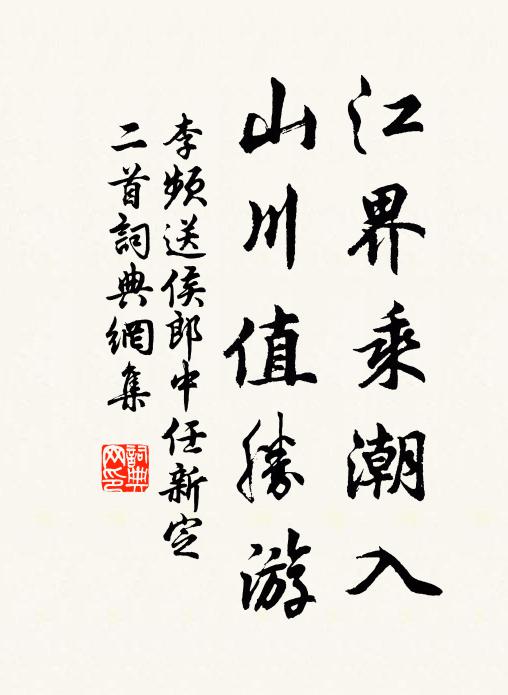 江界乘潮入
山川值勝游
李频送侯郎中任新定
二首詞典網集
詞典
网印